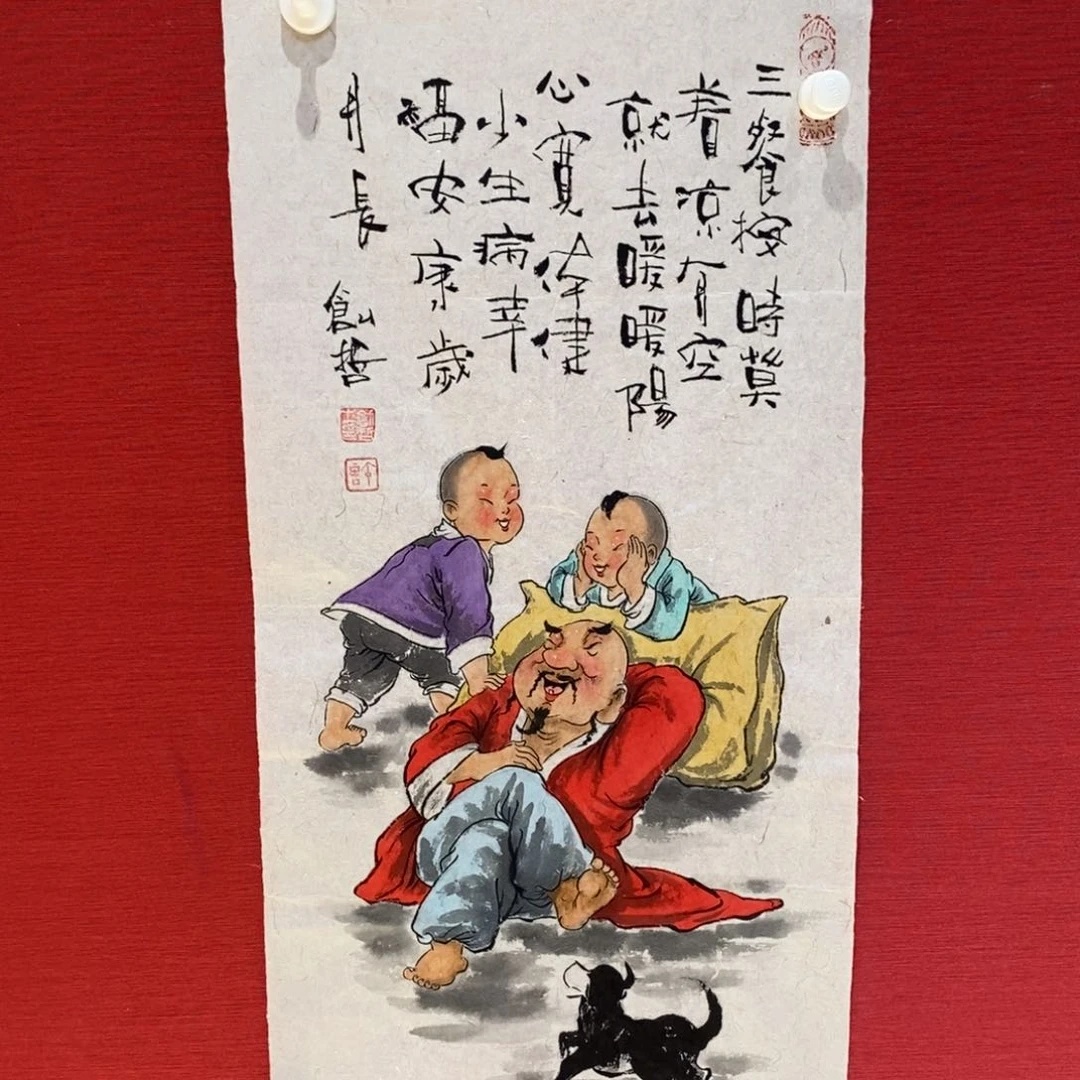 三餐按時莫
着凉有空
就去暖暖陽
心寬体健
少生病幸
福安康歲
月長
創哲